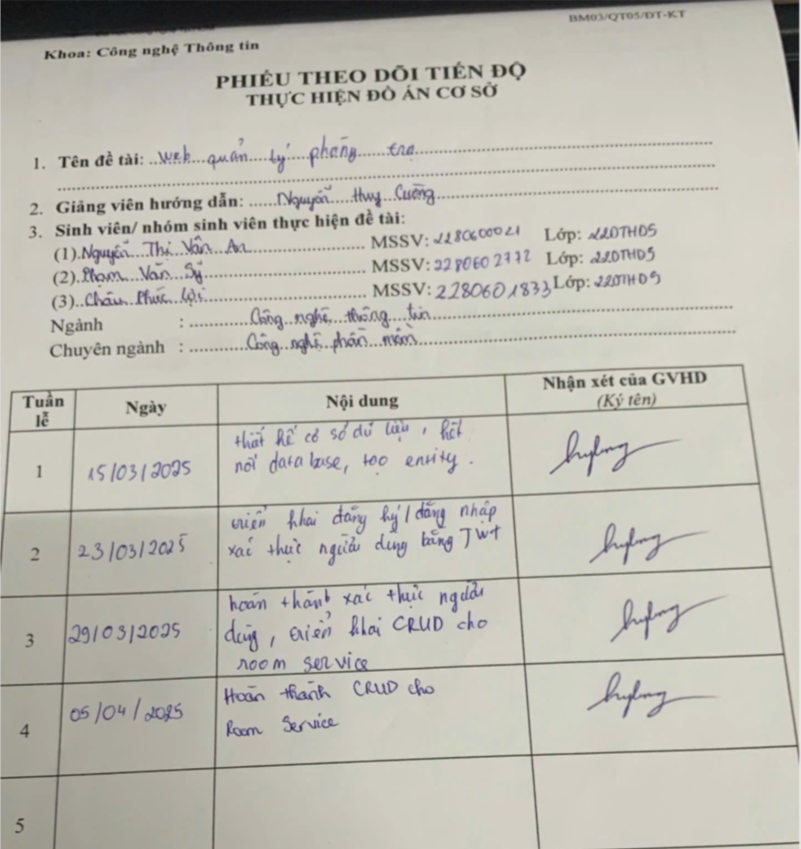 BM03/QT05/ĐT-KT
Khoa: Công nghệ Thông tin
PHIẾU THEO DÕI TIẾN ĐỘ
THỰC HIỆN ĐỒ ÁN CƠ SỞ
1. Tên đề tài: web quản lý phòng trọ
2. Giảng viên hướng dẫn: Nguyễn Huy Cường
3. Sinh viên/ nhóm sinh viên thực hiện đề tài:
(1). Nguyễn Thị Vân An MSSV: 2280600021 Lớp: 22DTHD5
(2). Phạm Văn Sỹ MSSV: 2280602772 Lớp: 22DTHD5
(3). Châu Phúc Lợi MSSV: 2280601833 Lớp: 22DTHD5
Ngành : Công nghệ thông tin
Chuyên ngành : Công nghệ phần mềm
Tuần lễ Ngày Nội dung Nhận xét của GVHD (Ký tên)
1 15/03/2025 thiết kế cơ sở dữ liệu, kết
nối database, tạo entity.
2 23/03/2025 triển khai đăng ký/đăng nhập
xác thực người dùng bằng JWT
3 29/03/2025 hoàn thành xác thực người
dùng, triển khai CRUD cho
room service
4 05/04/2025 Hoàn thành CRUD cho
Room Service
5